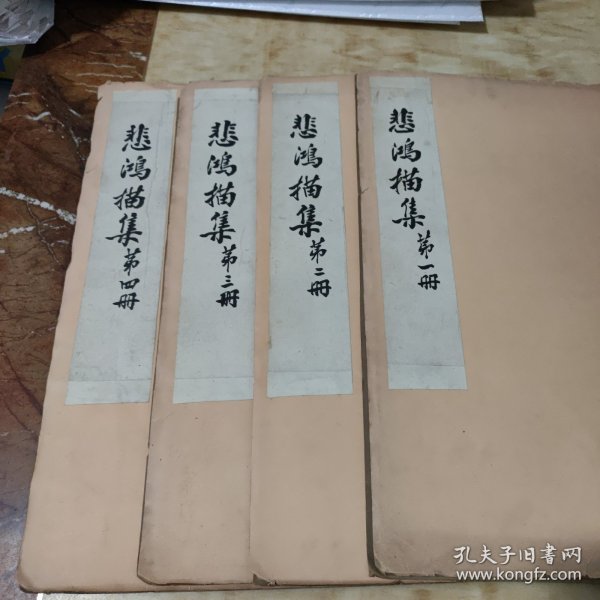 悲鸿描集 第一册
悲鸿描集 第二册
悲鸿描集 第三册
悲鸿描集 第四册
孔夫子旧書网
www.kongfz.com